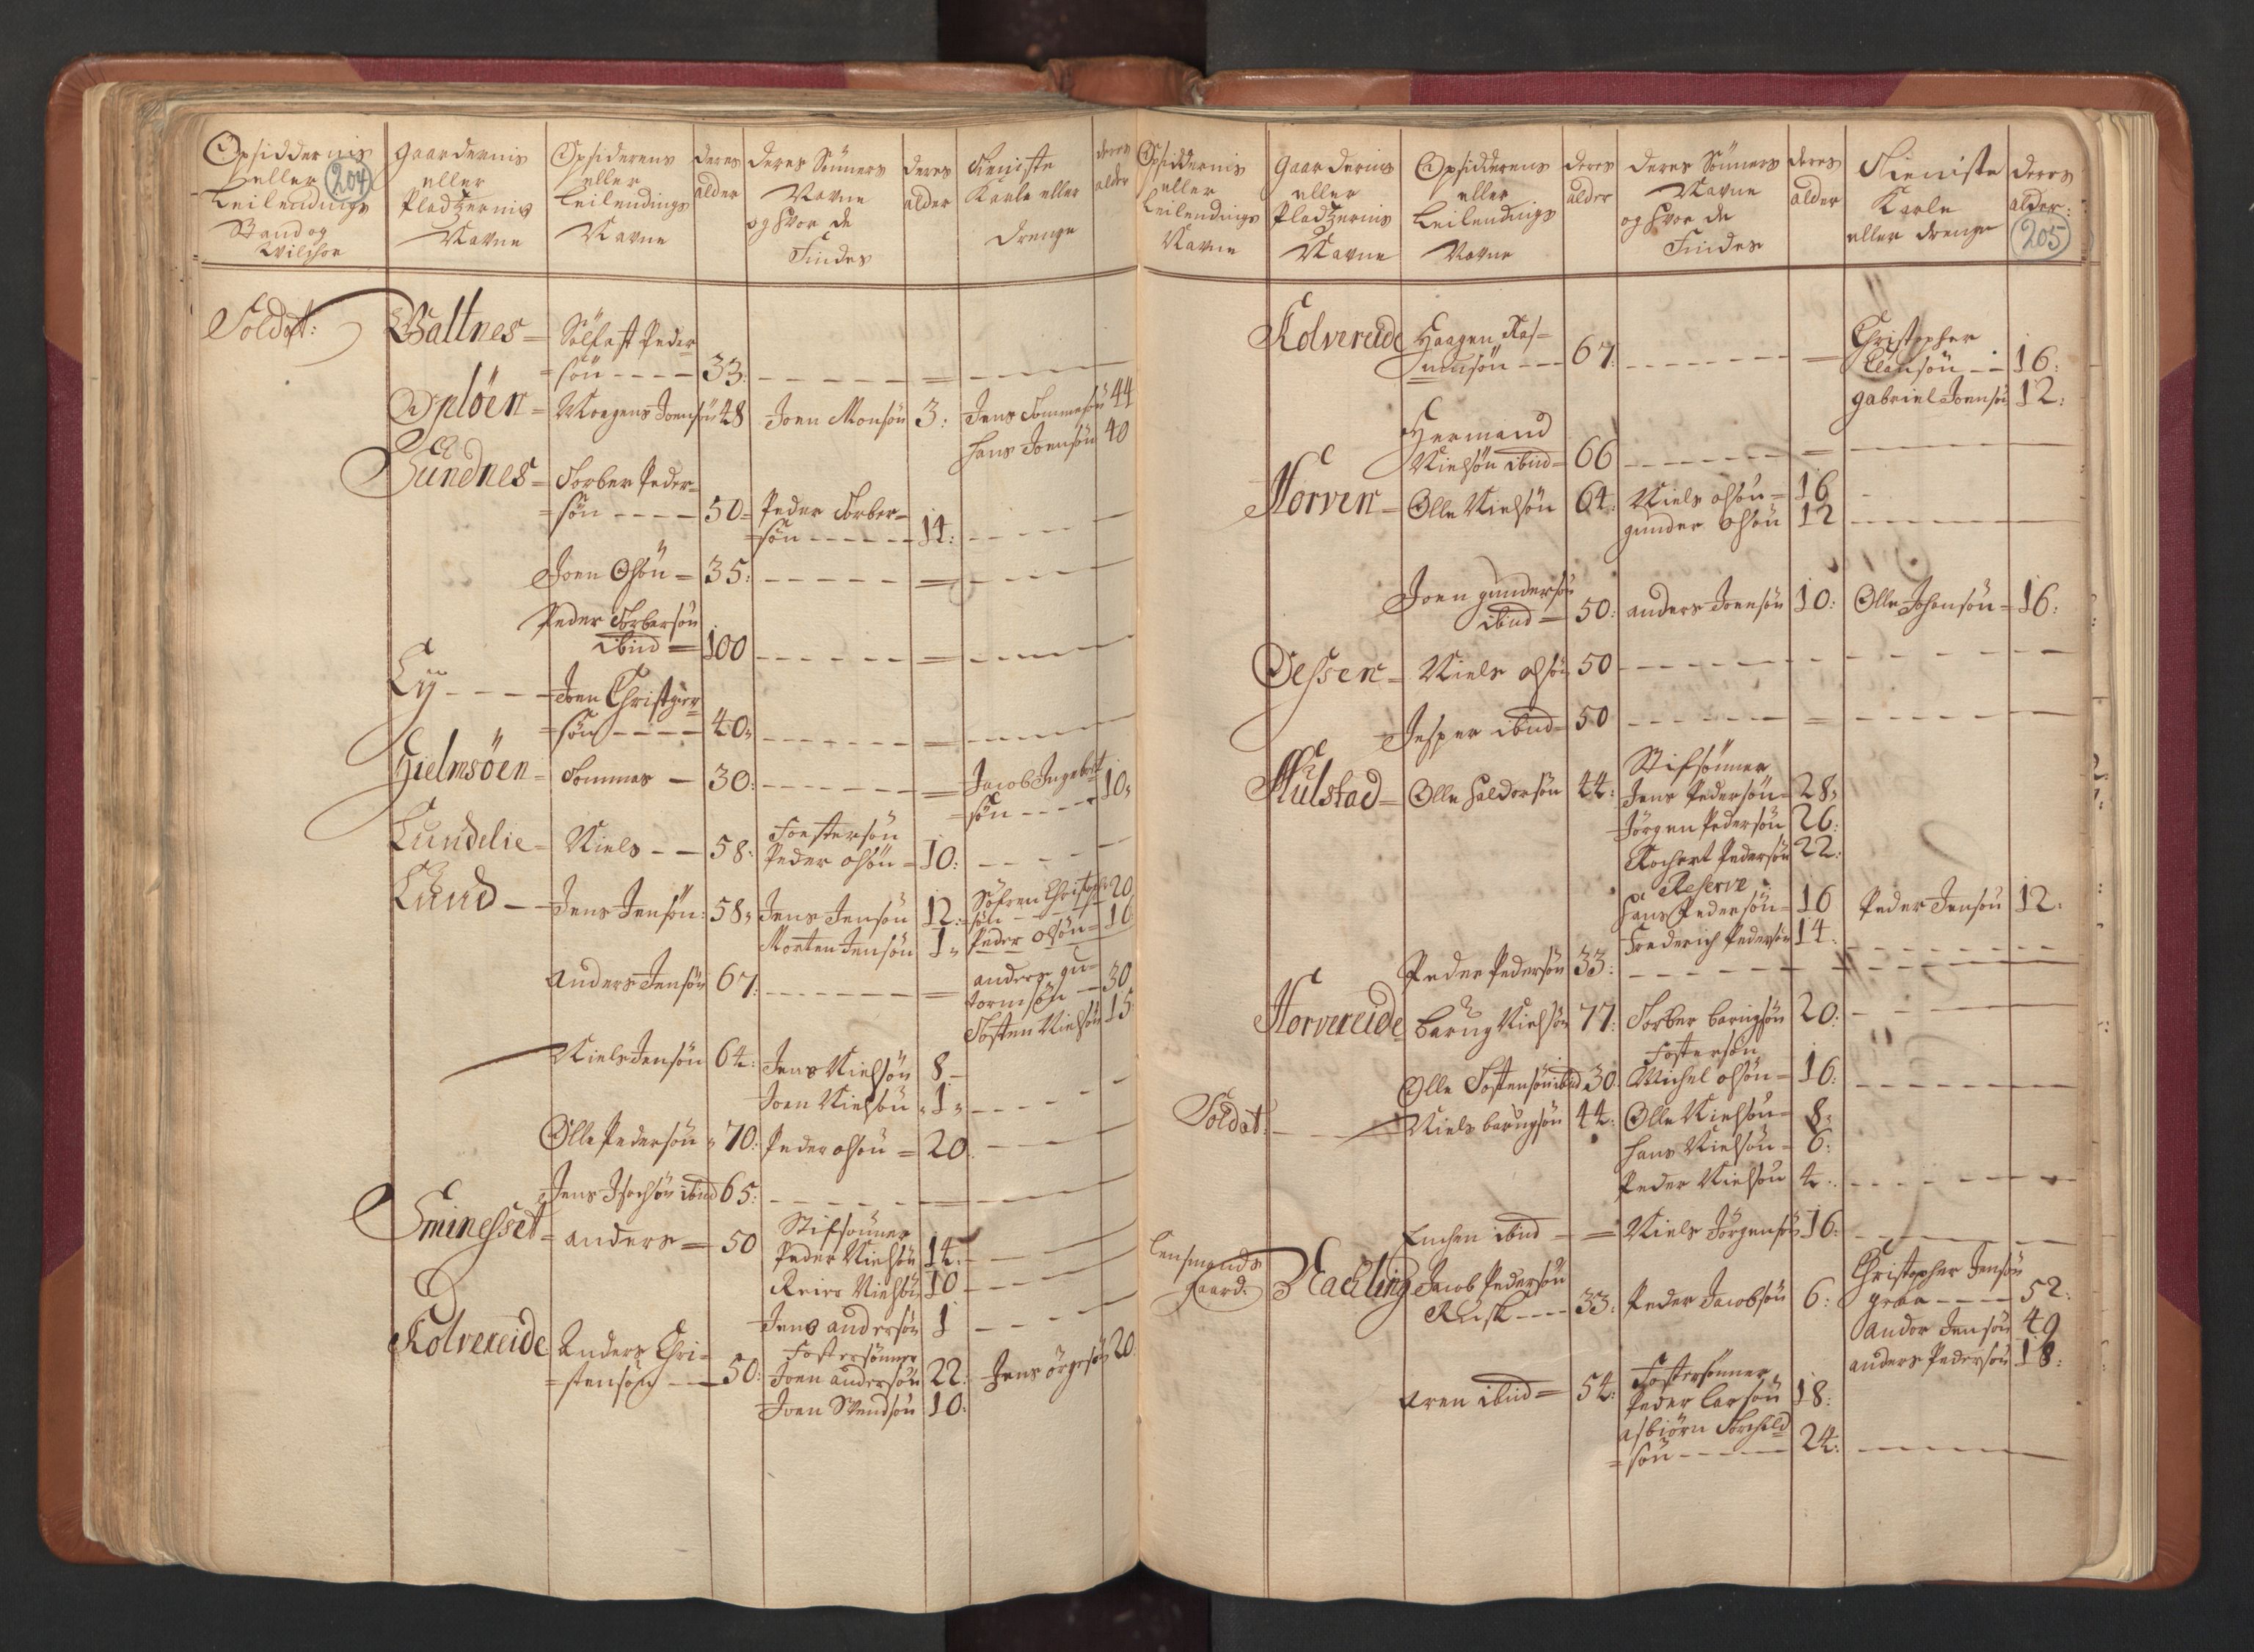 Opsiddernis
eller
Leilendings
Stand og
Wilchor
204
Gaardernis
eller
Pladzernis
Navne
Opsiderens
eller
Leilendings
Navne
deres
alder
deres Sönners
Navne
og hvor de
Findes
deres
alder
Tieniste
Karle eller
drenge
deres
alder
Soldat: Waltnes = Sölfast Peder=
=sön - - - - 33: - - - - - = - - - -
Oplöen = Mogens Joensön 48 Joen Monsön 3: Jens Tommesön 44
Hans Joensön 40
Sundnes = Torber Peder=
=sön - - - - 50= Peder Torber=
=sön - - - - - 14: - - - -
Joen Olsön = 35: - - - - - = - - - -
Peder Torbersön
ibid = 100 - - - - - = - - - -
Lÿ - - - - Joen Christopher
=sön - - - - 40, - - - - - = - - - -
Hielmsöen = Tommas - 30: - - - - - = Jacob Ingebret
=sön - - - - 10,
Lundelie = Niels - - 58: Fostersön
Peder Olsön = 10: - - - -
Lund - - Jens Jensön: 58, Jens Jensön 12: Söfren Christoph 20
=sön - - -
Morten Jensön 1, Peder Olsön = 16
Anders Jensön 67: - - - - - = anders gu=
tormsön - 30
Tosten Nielsön 15
Niels Jensön 64: Jens Nielsön 8 -
Joen Nielsön 1, - - - -
Olle Pedersön , 70: Peder Olsön = 20: - - -
Jens Isachsön ibid 65: - - - - - - - -
Eminesset = anders = 50 Stifsönner
Peder Nielsön 14: - - -
Reier Nielsön 10 - - -
Jens andersön 1 - - -
Kolvereide Anders Chri=
=stensön - - 50: Fostersönner
Joen andersön 22: Jens örgesön 20
Joen Svendsön 10:
Opsiddernis
eller
Leilendings
Navne
Gaardernis
eller
Pladzernis
Navne
Opsidderens
eller
Leilendings
Navne
deres
alder
deres Sönners
Navne
og hvor de
Findes
deres
alder
Tieniste
Karle
eller drenge
deres
alder:
205
Kolvereide Haagen Ras=
musön - - - 67: - - - - - - = Christopher
Clausön - - 16:
Gabriel Joensön 12:
Hermand
Nielsön ibid = 66 - - - - - - - - - -
Horven = Olle Nielsön 64: Niels Olsön = 16 -
gunder Olsön 12 - - - -
Joen gundersön
ibid = 50: anders Joensön 10: Olle Johansön = 16:
Oessen = Niels Olsön 50 - - - - - - - - - -
Jesper ibid = 50 - - - - - = - - - -
Mulstad = Olle Haldorsön 44: Stifsönner
Jens Pedersön = 28,
Jörgen Pedersön 26:
Rochert Pedersön 22:
Reserve
Hans Pedersön = 16 Peder Jensön 12:
Frederich Pedersön 14: - - - -
Peder Pedersön 33: - - - - - - - - - -
Horvereide Barug Nielsön 77: Torber Barugsön 20: - - - -
Olle Tostensön ibid 30 Fostersön
Michel Olsön = 16: - - - -
Soldat: - - Niels Barugsön 44: Olle Nielsön = 8:
Hans Nielsön = 6:
Peder Nielsön 4: - - - -
Enchen ibid = = Niels Jörgensön 16: - - - -
Lensmands
gaard: Nachling Jacob Pedersön
Rusk - - - 33: Peder Jacobsön 6: Christopher Jensön
graa - - - - 52:
andor Jensön 49
anders Pedersön 18:
ibid = 54: Fostersönner
Peder Larsön 18:
asbiörn Torchild
=sön - - - - - 24: - - - -